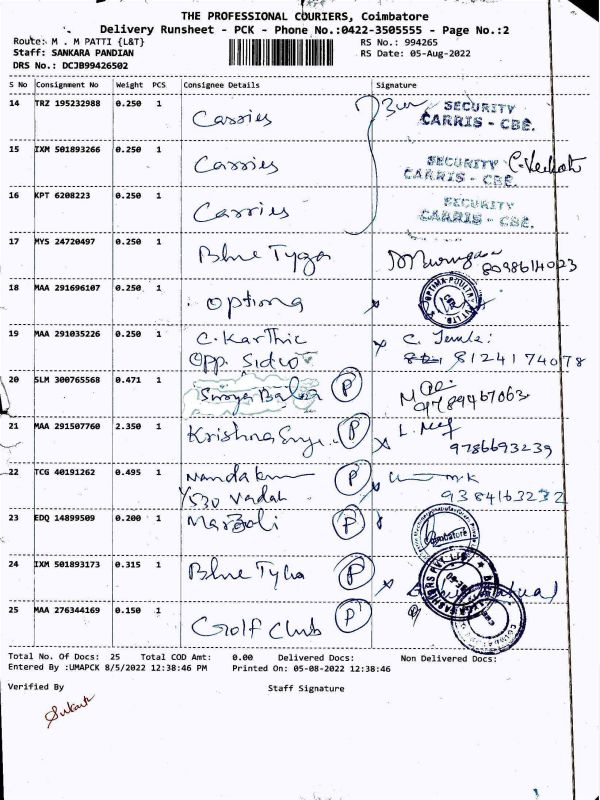 THE PROFESSIONAL COURIERS, Coimbatore
Delivery Runsheet - PCK - Phone No.:0422-3505555 - Page No.:2
Route: M . M PATTI {L&T} RS No.: 994265
Staff: SANKARA PANDIAN RS Date: 05-Aug-2022
DRS No.: DCJB99426502
S No Consignment No Weight PCS Consignee Details Signature
14 TRZ 195232988 0.250 1 Carries SECURITY
CARRIS - CBE.
15 IXM 501893266 0.250 1 Carries SECURITY
CARRIS - CBE.
16 KPT 6208223 0.250 1 Carries SECURITY
CARRIS - CBE.
17 MYS 24720497 0.250 1 Blue Tyga
8098614023
18 MAA 291696107 0.250 1 Optima OPTIMA POULTRY PVT LTD
19 MAA 291035226 0.250 1 C. Karthic C.
Opp. Sidco 8124174078
20 SLM 300765568 0.471 1 Surya Bala P
9789467063
21 MAA 291507760 2.350 1 Krishna P L.
9786693239
22 TCG 40191262 0.495 1 Nandakum P
9384163232
23 EDQ 14899509 0.200 1 Marzoli P Coimbatore
24 IXM 501893173 0.315 1 Blue Tyga P
25 MAA 276344169 0.150 1 Golf Club P
Total No. Of Docs: 25 Total COD Amt: 0.00 Delivered Docs: Non Delivered Docs:
Entered By :UMAPCK 8/5/2022 12:38:46 PM Printed On: 05-08-2022 12:38:46
Verified By Staff Signature